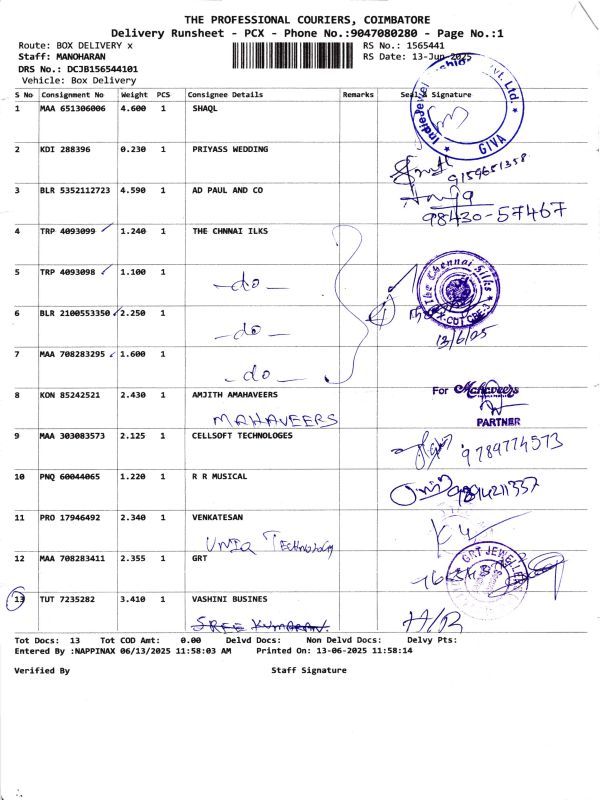 THE PROFESSIONAL COURIERS, COIMBATORE
Delivery Runsheet - PCX - Phone No.:9047080280 - Page No.:1
Route: BOX DELIVERY x RS No.: 1565441
Staff: MANOHARAN RS Date: 13-Jun-2025
DRS No.: DCJB156544101
Vehicle: Box Delivery
S No Consignment No Weight PCS Consignee Details Remarks Seal & Signature
1 MAA 651306006 4.600 1 SHAQL
Pvt. Ltd.
GIVA
2 KDI 288396 0.230 1 PRIYASS WEDDING
9159651358
3 BLR 5352112723 4.590 1 AD PAUL AND CO
98430-57467
4 TRP 4093099 1.240 1 THE CHNNAI ILKS
5 TRP 4093098 1.100 1
-do-
The Chennai Silks
6 BLR 2100553350 2.250 1
-do-
13/6/25
7 MAA 708283295 1.600 1
-do-
8 KON 85242521 2.430 1 AMJITH AMAHAVEERS
MAHAVEERS
For Mahaveers
PARTNER
9 MAA 303083573 2.125 1 CELLSOFT TECHNOLOGES
9789774573
10 PNQ 60044065 1.220 1 R R MUSICAL
11 PRO 17946492 2.340 1 VENKATESAN
UNIQ TECHNOLOGY
12 MAA 708283411 2.355 1 GRT
GRT JEWELLERS
13 TUT 7235282 3.410 1 VASHINI BUSINES
SREE KUMARAN
H/R
Tot Docs: 13 Tot COD Amt: 0.00 Delvd Docs: Non Delvd Docs: Delvy Pts:
Entered By :NAPPINAX 06/13/2025 11:58:03 AM Printed On: 13-06-2025 11:58:14
Verified By Staff Signature